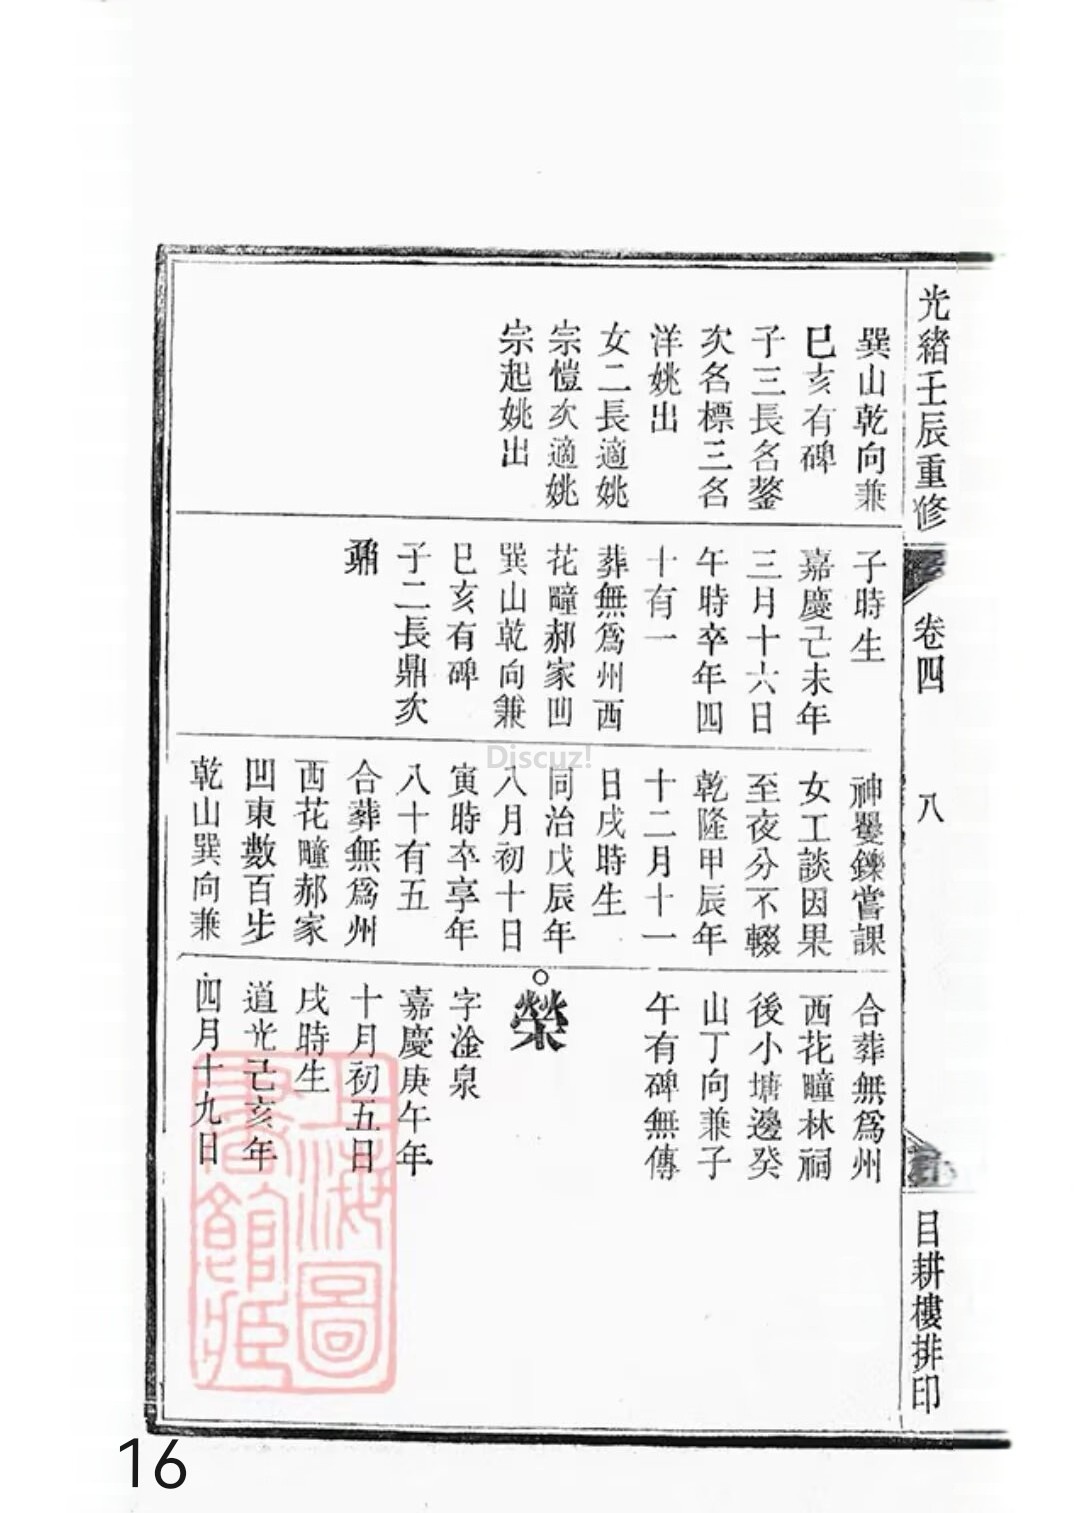 光緒壬辰重修
卷四
八
目耕樓排印
巽山乾向兼
巳亥有碑
子三長名鏊
次名標三名
洋姚出
女二長適姚
宗愷次適姚
宗起姚出
子時生
嘉慶己未年
三月十六日
午時卒年四
十有一
葬無爲州西
花疃郝家凹
巽山乾向兼
巳亥有碑
子二長鼎次
鼐
神矍鑠嘗課
女工談因果
至夜分不輟
乾隆甲辰年
十二月十一
日戌時生
同治戊辰年
八月初十日
寅時卒享年
八十有五
合葬無爲州
西花疃郝家
凹東數百步
乾山巽向兼
合葬無爲州
西花疃林祠
後小塘邊癸
山丁向兼子
午有碑無傳
榮
字淦泉
嘉慶庚午年
十月初五日
戌時生
道光己亥年
四月十九日
上海圖
書館藏
Discuz!
16